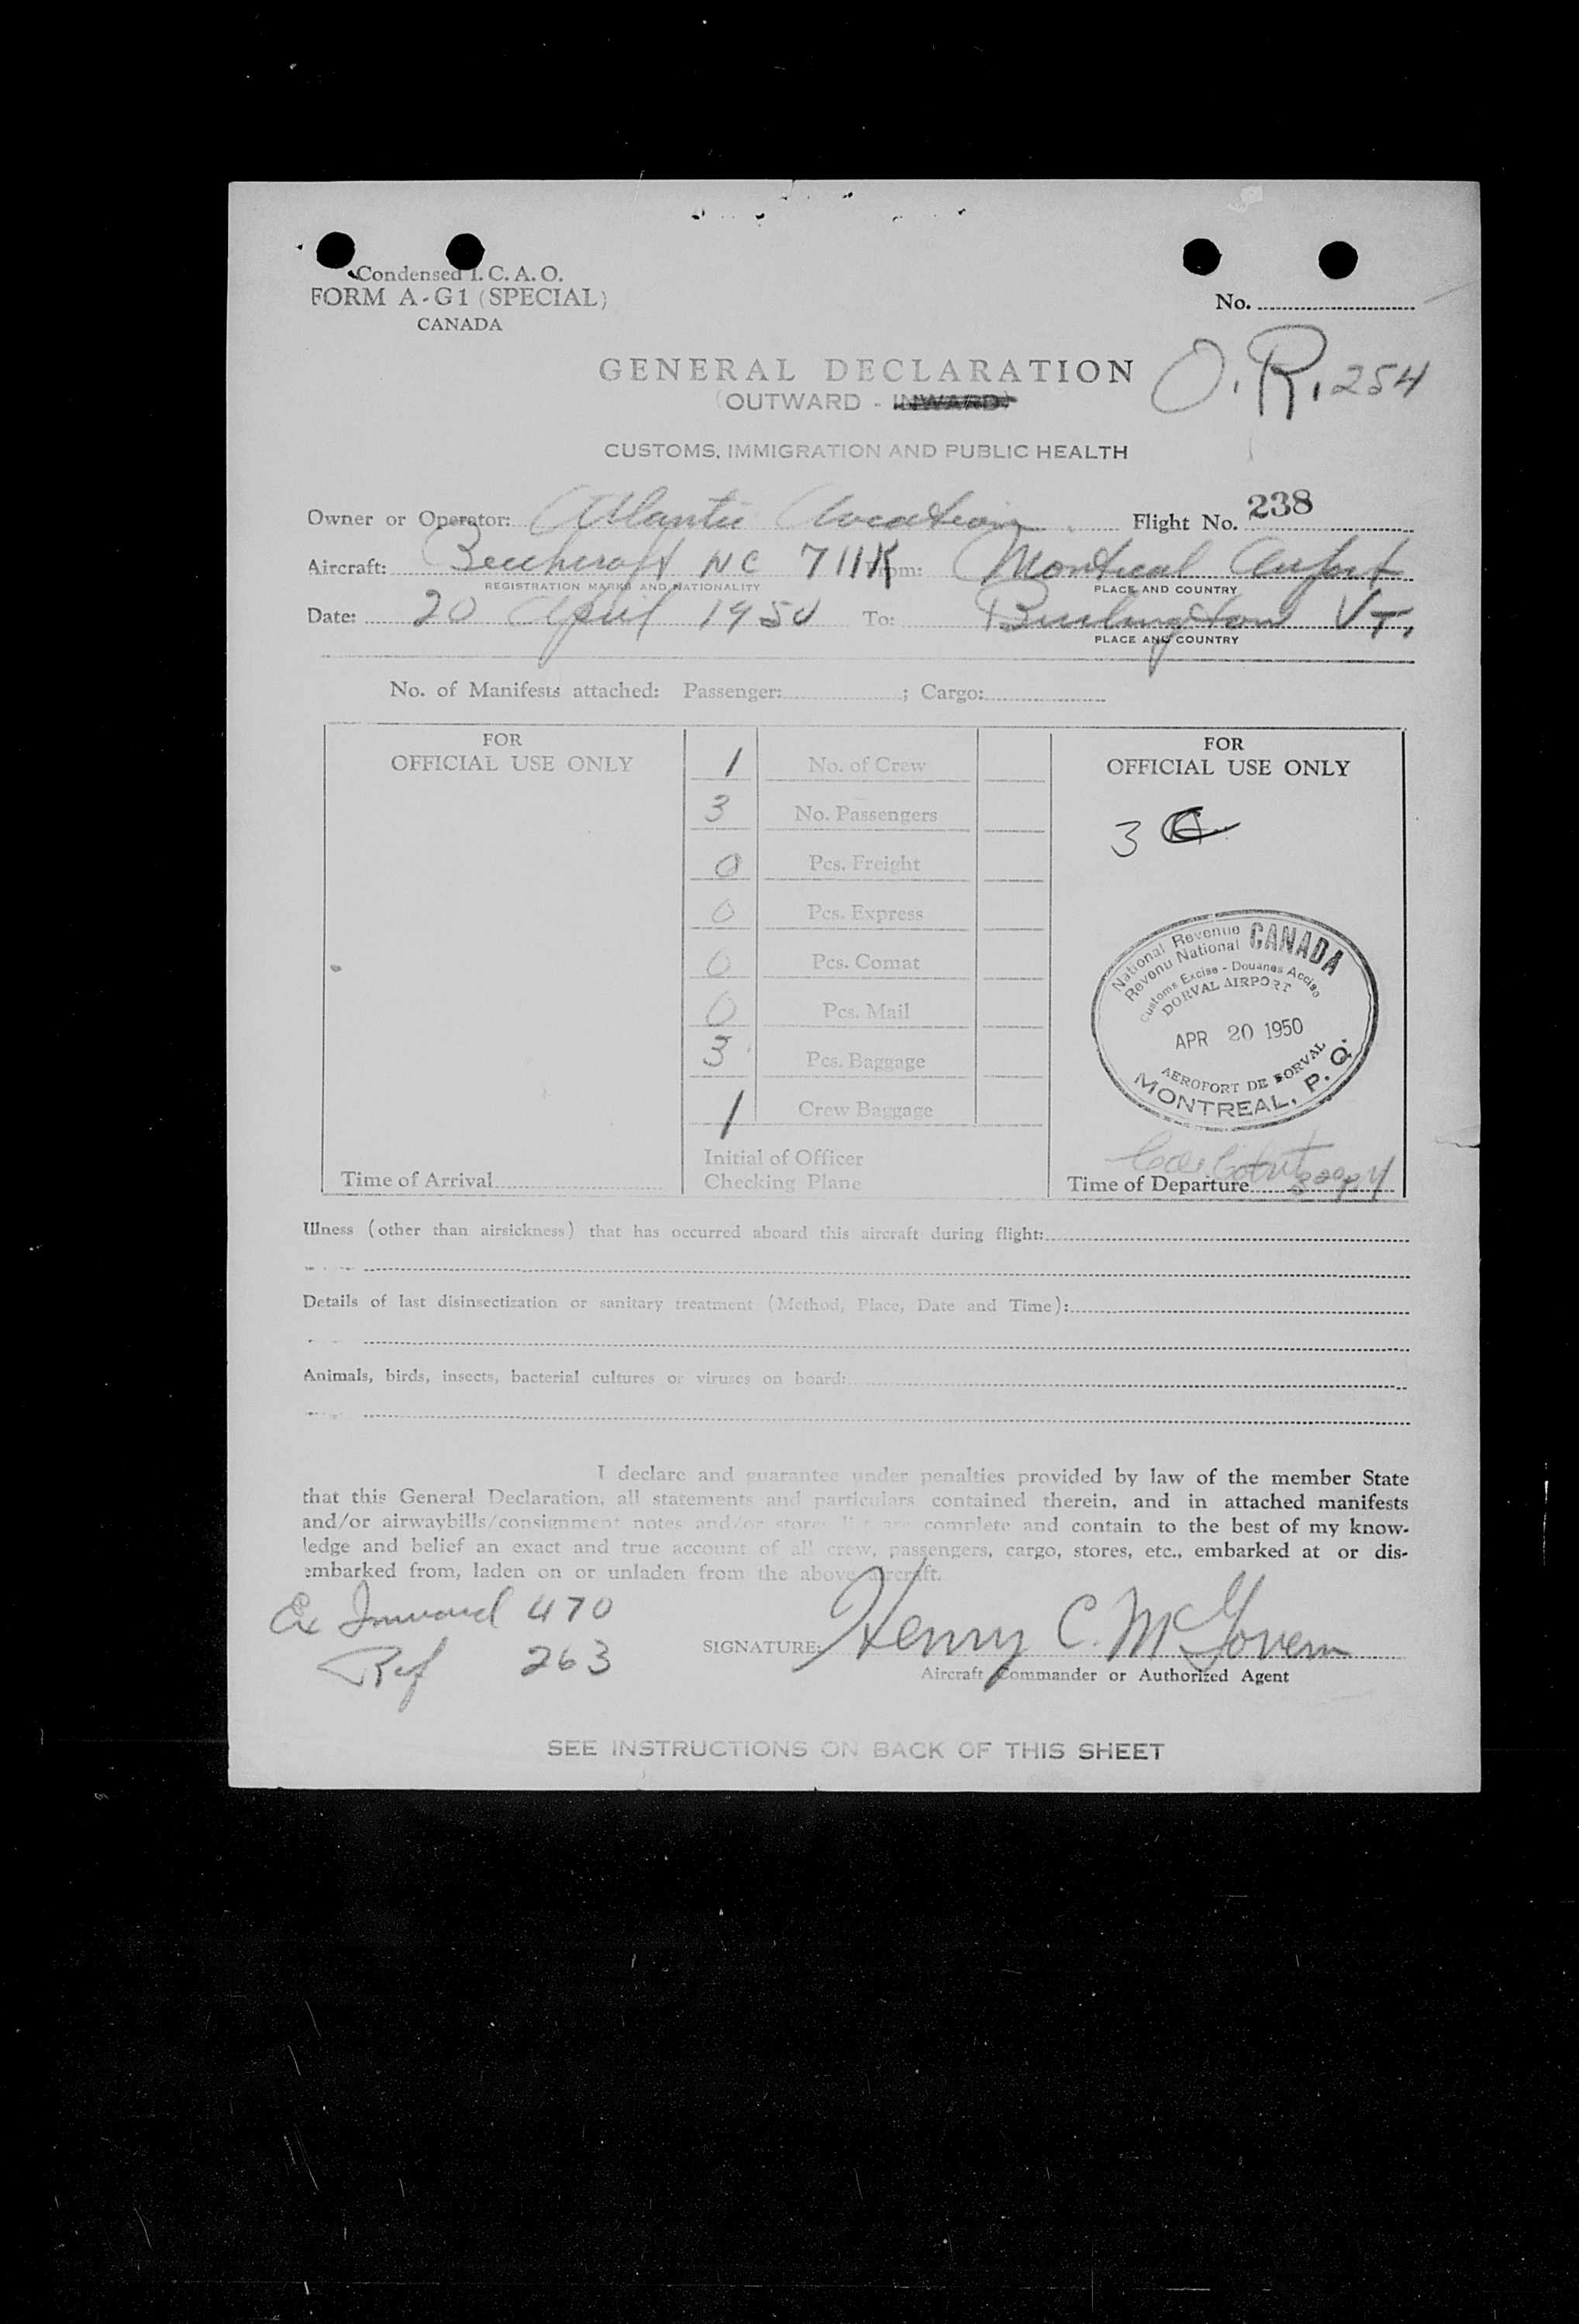 Condensed I. C. A. O.
FORM A-G1 (SPECIAL)
CANADA
No.
GENERAL DECLARATION
O.R. 254
(OUTWARD - INWARD)
CUSTOMS, IMMIGRATION AND PUBLIC HEALTH
Owner or Operator: Atlantic Aviation Flight No. 238
Aircraft: Beechcraft NC 711K From: Montreal Airport
REGISTRATION MARKS AND NATIONALITY PLACE AND COUNTRY
Date: 20 April 1950 To: Burlington VT.
PLACE AND COUNTRY
No. of Manifests attached: Passenger: ; Cargo:
FOR
OFFICIAL USE ONLY
1 No. of Crew
3 No. Passengers
0 Pcs. Freight
0 Pcs. Express
0 Pcs. Comat
0 Pcs. Mail
3 Pcs. Baggage
1 Crew Baggage
Initial of Officer
Checking Plane
Time of Arrival
FOR
OFFICIAL USE ONLY
3
National Revenue CANADA
Revenu National
Customs Excise - Douanes Accise
DORVAL AIRPORT
APR 20 1950
AEROPORT DE DORVAL
MONTREAL, P. Q.
Time of Departure
Illness (other than airsickness) that has occurred aboard this aircraft during flight:
Details of last disinsectization or sanitary treatment (Method, Place, Date and Time):
Animals, birds, insects, bacterial cultures or viruses on board:
I declare and guarantee under penalties provided by law of the member State
that this General Declaration, all statements and particulars contained therein, and in attached manifests
and/or airwaybills/consignment notes and/or stores list are complete and contain to the best of my know-
ledge and belief an exact and true account of all crew, passengers, cargo, stores, etc., embarked at or dis-
embarked from, laden on or unladen from the above aircraft.
Ex Inward 470
Ref 263
SIGNATURE: Henry C. McGovern
Aircraft Commander or Authorized Agent
SEE INSTRUCTIONS ON BACK OF THIS SHEET